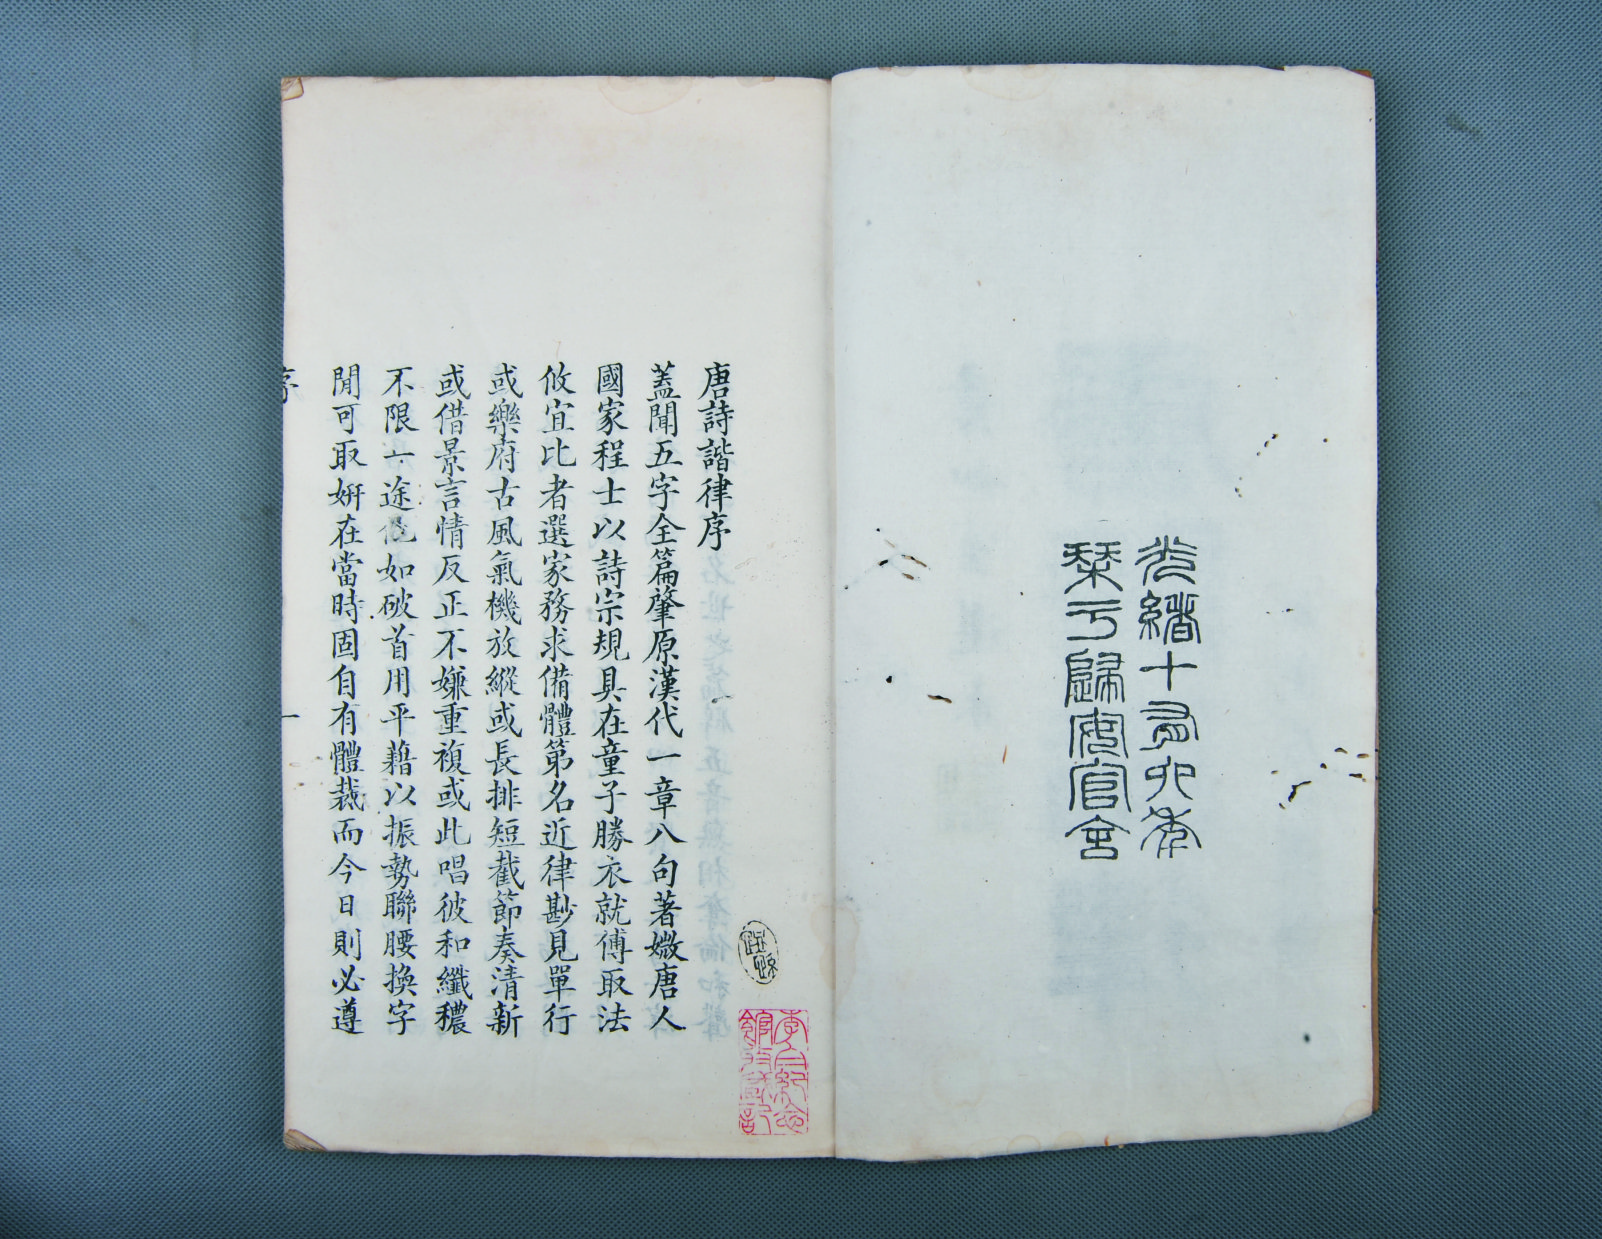 光緒十有六年
栞于歸安官舍
唐詩諧律序
蓋聞五字全篇肇原漢代一章八句著媺唐人
國家程士以詩宗規具在童子勝衣就傅取法
攸宜比者選家務求備體第名近律尠見單行
或樂府古風氣機放縱或長排短截節奏清新
或借景言情反正不嫌重複或此唱彼和纖穠
不限一途他如破首用平藉以振勢聯腰換字
閒可取妍在當時固自有體裁而今日則必遵
序 一
李白紀念
館登記